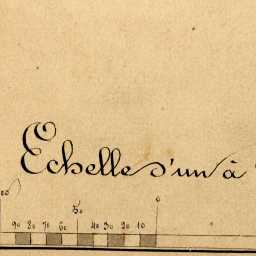 Echelle d'un à
50 0
90 80 70 60 40 30 20 10